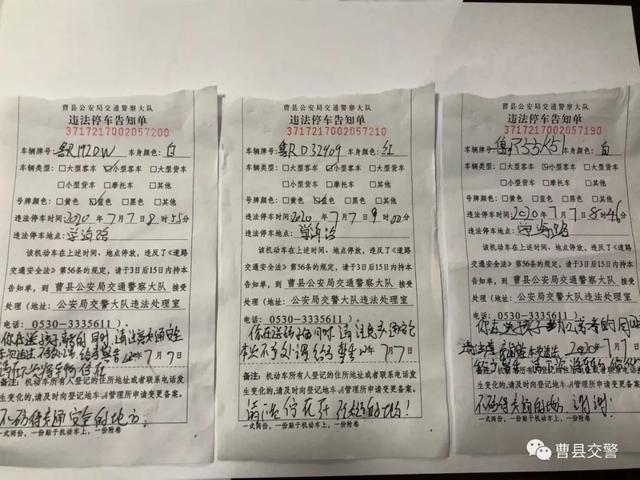 曹县公安局交通警察大队
违法停车告知单
3717217002057200
车辆牌号: 鲁R 192DW 车身颜色: 白
车辆类型: □大型客车 ☑小型客车 □大型货车
□小型货车 □摩托车 □其他
号牌颜色 □黄色 ☑蓝色 □黑色 □其他
违法停车时间2020年7月7日8时55分
违法停车地点:
该机动车在上述时间、地点停放，违反了《道路
交通安全法》第56条的规定，请于3日后15日内持本
告知单，到 曹县公安局交通警察大队 接受
处理（地址: 公安局交警大队违法处理室
电话: 0530-3335611）
你在送孩子高考的同时，请注意交通安全
7月7日
备注: 机动车所有人登记的住所地址或者联系电话发
生变化的,请及时向登记地车辆管理所申请变更备案。
不妨碍交通安全的地方;
一式两份，一份贴于机动车上，一份附卷
曹县公安局交通警察大队
违法停车告知单
3717217002057210
车辆牌号: 鲁R D32909 车身颜色: 红
车辆类型: □大型客车 ☑小型客车 □大型货车
□小型货车 □摩托车 □其他
号牌颜色 □黄色 ☑蓝色 □黑色 □其他
违法停车时间2020年7月7日9时00分
违法停车地点:
该机动车在上述时间、地点停放，违反了《道路
交通安全法》第56条的规定，请于3日后15日内持本
告知单，到 曹县公安局交通警察大队 接受
处理（地址: 公安局交警大队违法处理室
电话: 0530-3335611）
你在送孩子的同时，请注意交通安全
本次不予处理 给予警告 7月7日
备注: 机动车所有人登记的住所地址或者联系电话发
生变化的,请及时向登记地车辆管理所申请变更备案。
一式两份，一份贴于机动车上，一份附卷
曹县公安局交通警察大队
违法停车告知单
3717217002057190
车辆牌号: 鲁R 车身颜色: 白
车辆类型: □大型客车 ☑小型客车 □大型货车
□小型货车 □摩托车 □其他
号牌颜色 □黄色 ☑蓝色 □黑色 □其他
违法停车时间2020年7月7日8时46分
违法停车地点:
该机动车在上述时间、地点停放，违反了《道路
交通安全法》第56条的规定，请于3日后15日内持本
告知单，到 曹县公安局交通警察大队 接受
处理（地址: 公安局交警大队违法处理室
电话: 0530-3335611）
你在送孩子高考的同时
2020年7月7日
备注: 机动车所有人登记的住所地址或者联系电话发
生变化的,请及时向登记地车辆管理所申请变更备案。
不妨碍交通的地方，谢谢!
一式两份，一份贴于机动车上，一份附卷
曹县交警